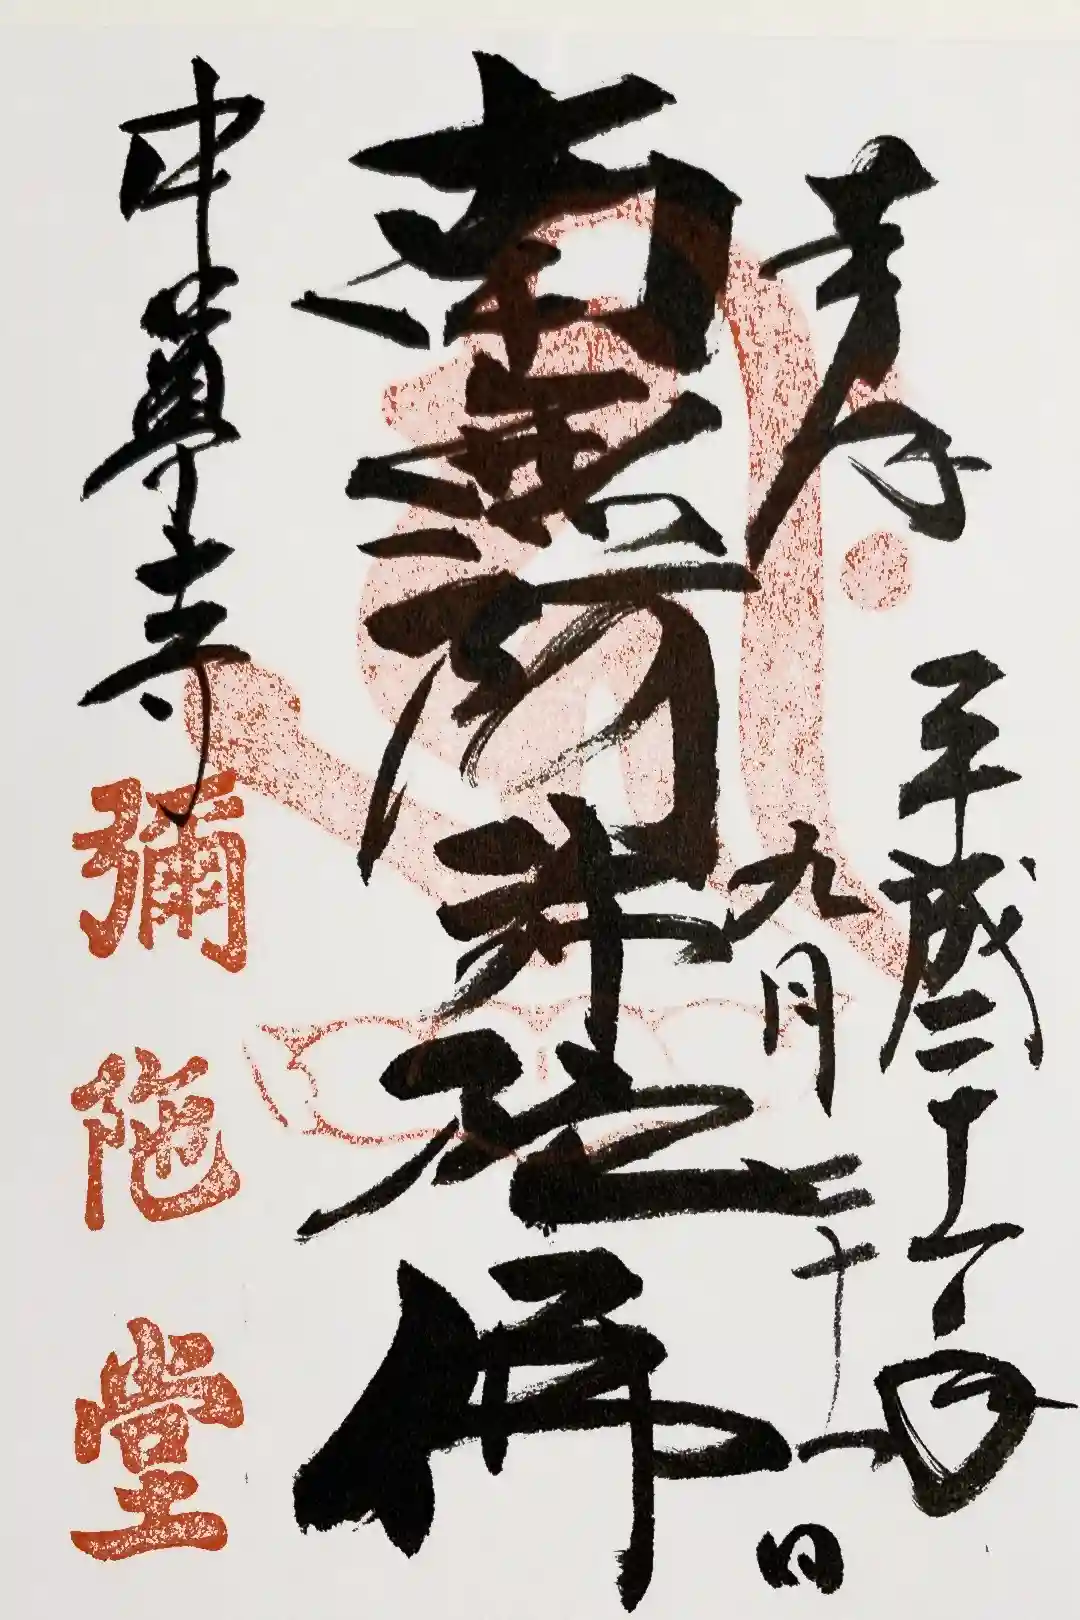 奉拝
平成二十六年
九月二十一日
南無阿弥陀佛
中尊寺
彌陀堂